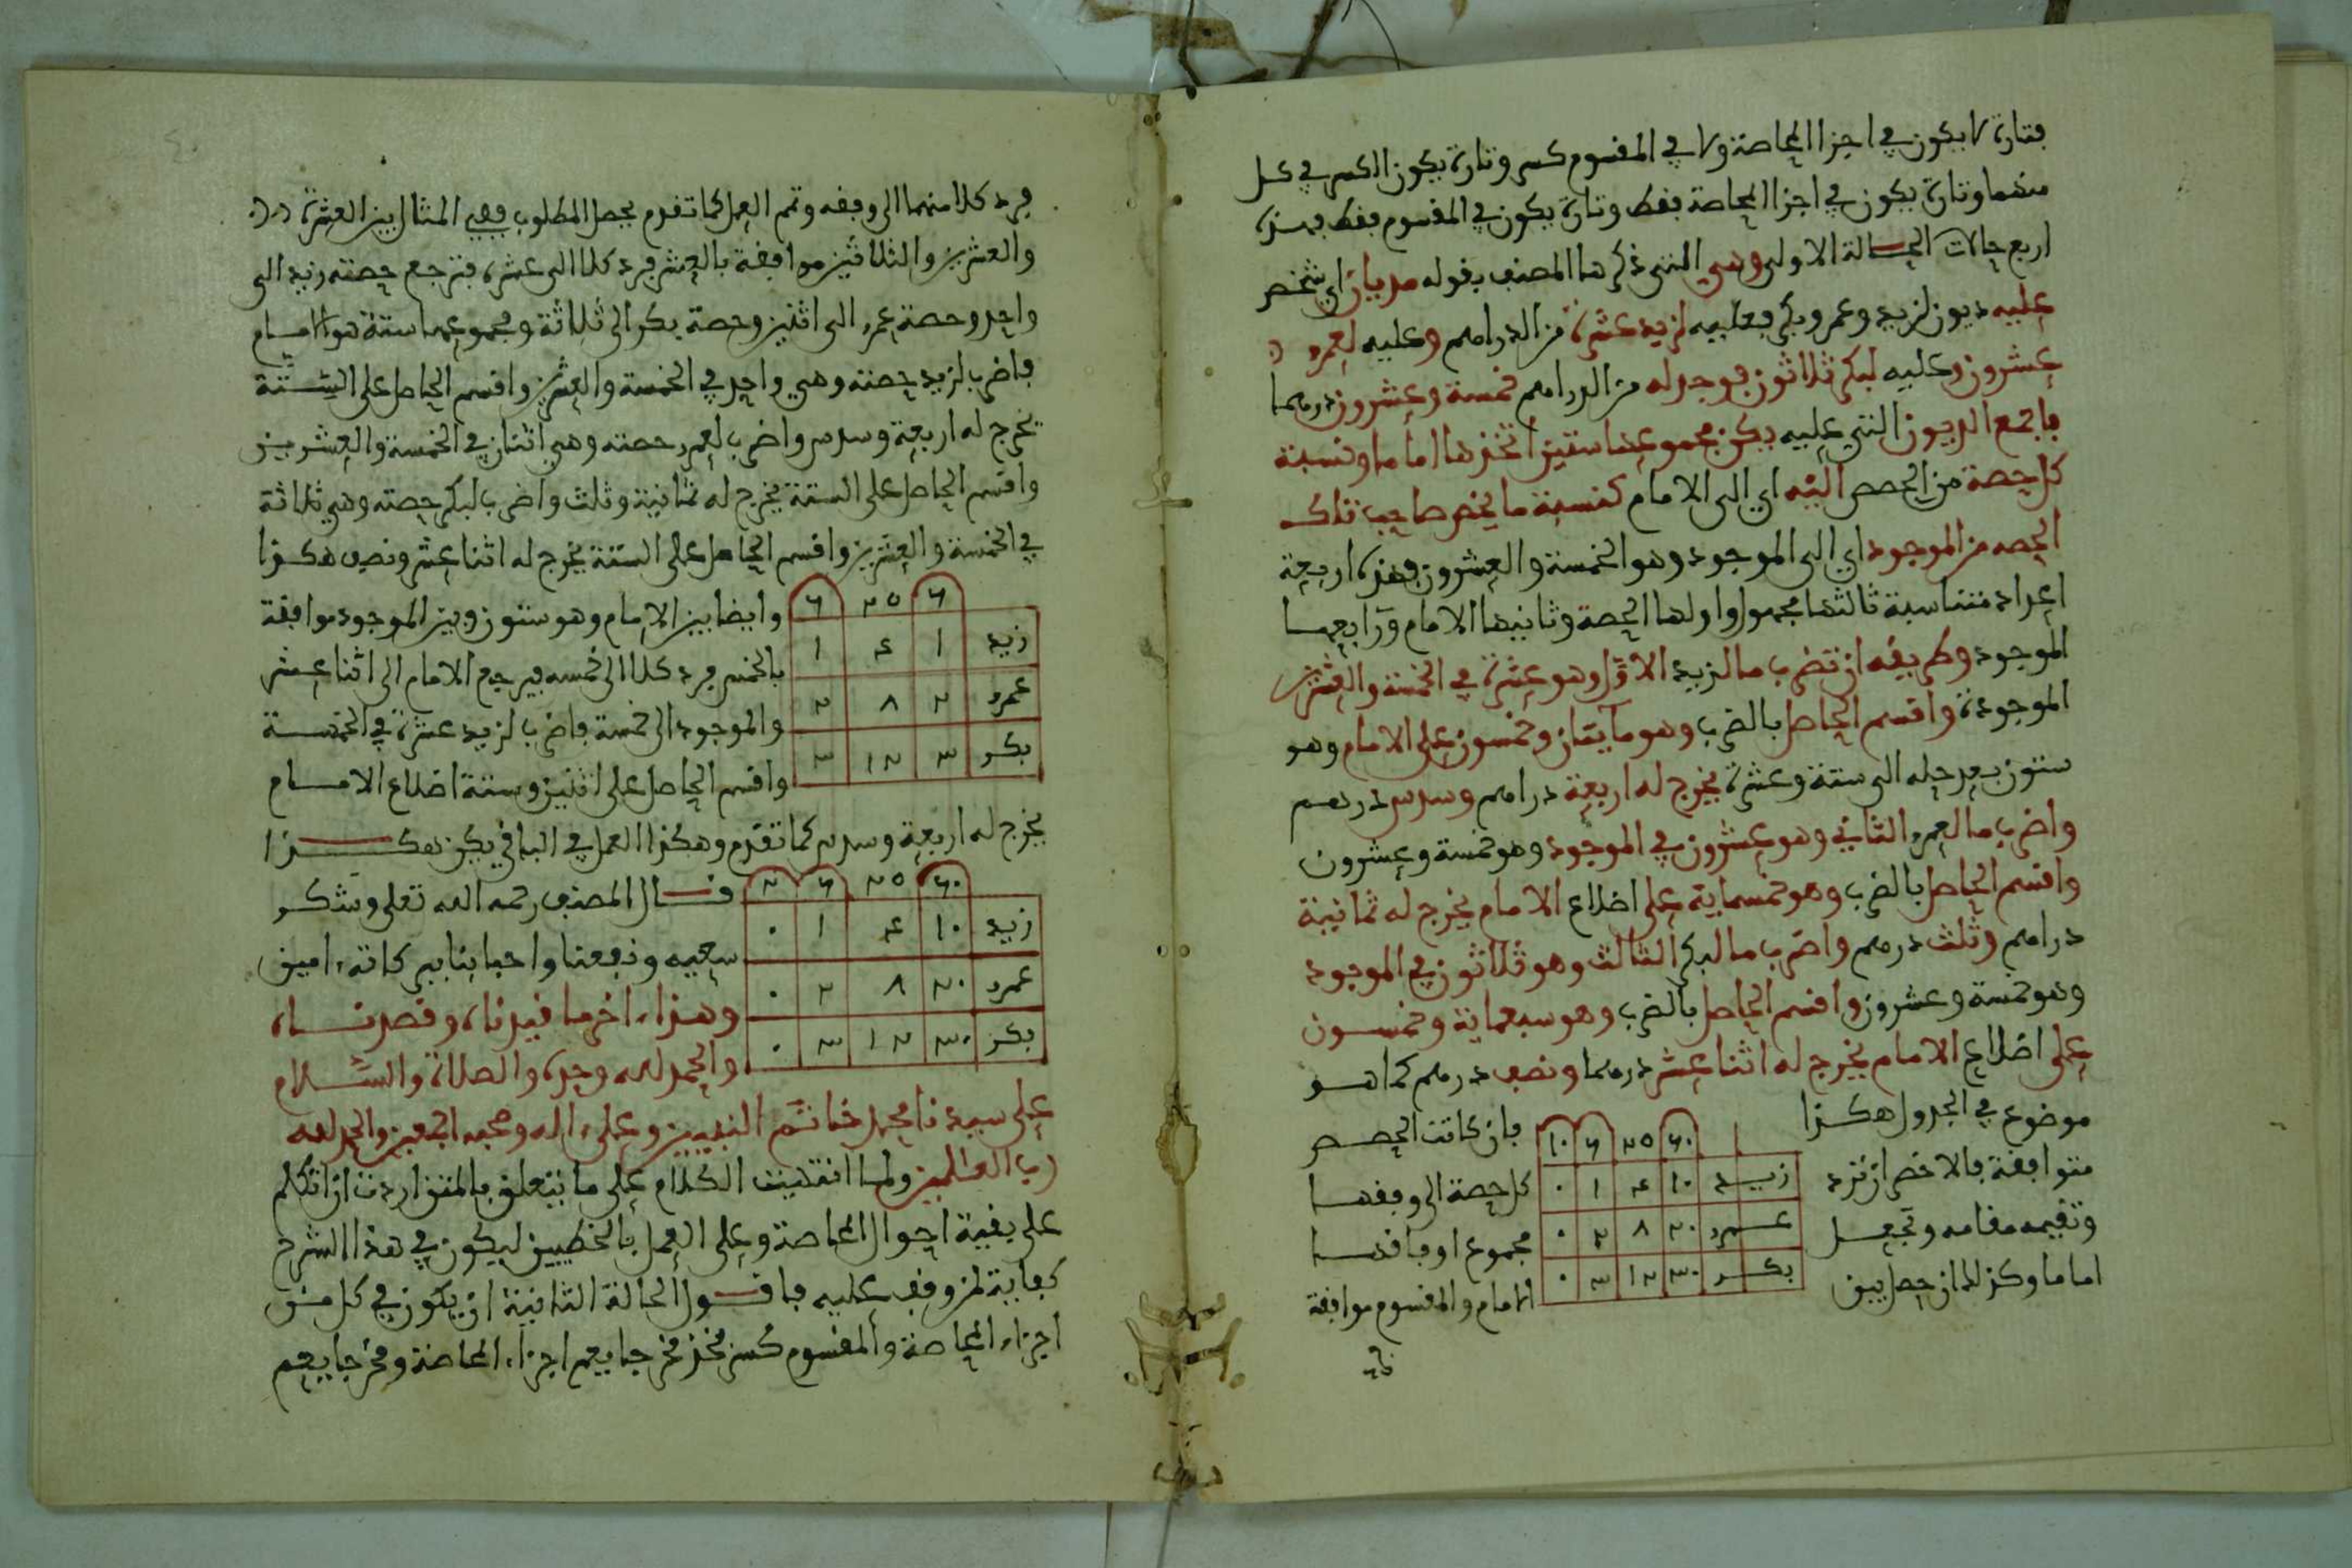 فتارة لا يكون في اجزا المحاصة ولا في المقسوم كسر وتارة يكون الكسر في كل
منهما وتارة يكون في اجزا المحاصة فقط وتارة يكون في المقسوم فقط فهذه
اربع حالات الحالة الاولى وهي التي ذكرها المصنف بقوله مديان اي شخص
عليه ديون لزيد وعمرو وبكر فعليه لزيد عشرة من الدراهم وعليه لعمرو
عشرون وعليه لبكر ثلاثون فوجد له من الدراهم خمسة وعشرون درهما
فاجمع الديون التي عليه يكن مجموعها ستين اتخذها اماما ونسبة
كل حصة من الحصص اليه اي الى الامام كنسبة ما يخص صاحب تلك
الحصه من الموجود اي الى الموجود وهو الخمسة والعشرون فهذه اربعة
اعداد متناسبة ثالثها مجهول واولها الحصة وثانيها الامام ورابعها
الموجود وطريقه ان تضرب ما لزيد الاول وهو عشرة في الخمسة والعشرين
الموجودة واقسم الحاصل بالضرب وهو مايتان وخمسون على الامام وهو
ستون بعد حله الى ستة وعشرة يخرج له اربعة دراهم وسدس درهم
واضرب ما لعمرو الثاني وهو عشرون في الموجود وهو خمسة وعشرون
واقسم الحاصل بالضرب وهو خمسماية على اضلاع الامام يخرج له ثمانية
دراهم وثلث درهم واضرب ما لبكر الثالث وهو ثلاثون في الموجود
وهو خمسة وعشرون واقسم الحاصل بالضرب وهو سبعماية وخمسون
على اضلاع الامام يخرج له اثنا عشر درهما ونصف درهم كما هو
موضوع في الجدول هكذا
٦٠ ٢٥ ٦ ١٠
زيد ١٠ ٤ ١ ٠
عمرو ٢٠ ٨ ٢ ٠
بكر ٣٠ ١٢ ٣ ٠
فان كانت الحصص
متوافقة فالاخصر ان ترد كل حصة الى وفقها
وتقيمه مقامه وتجعل مجموع اوفاقها
اماما وكذلك ان حصل بين الامام والمقسوم موافقة
فرد كلا منهما الى وفقه وتمم العمل كما تقدم يحصل المطلوب ففي المثال بين العشرة
والعشرين والثلاثين موافقة بالعشر فرد كلا الى عشره فترجع حصته زيد الى
واحد وحصة عمرو الى اثنين وحصة بكر الى ثلاثة ومجموعها ستة هو الامام
فاضرب لزيد حصته وهي واحد في الخمسة والعشرين واقسم الحاصل على الستة
يخرج له اربعة وسدس واضرب لعمرو حصته وهي اثنان في الخمسة والعشرين
واقسم الحاصل على الستة يخرج له ثمانية وثلث واضرب لبكر حصته وهي ثلاثة
في الخمسة والعشرين واقسم الحاصل على الستة يخرج له اثنا عشر ونصف هكذا
٦ ٢٥ ٦
زيد ١ ٤ ١
عمرو ٢ ٨ ٢
بكر ٣ ١٢ ٣
وايضا بين الامام وهو ستون وبين الموجود موافقة
بالخمس فرد كلا الى خمسه فيرجع الامام الى اثنا عشر
والموجود الى خمسة فاضرب لزيد عشرة في الخمسة
واقسم الحاصل على اثنين وستة اضلاع الامام
يخرج له اربعة وسدس كما تقدم وهكذا العمل في الباقي يكن هكذا
٦٠ ٢٥ ٦ ٢
زيد ١٠ ٤ ١ ٠
عمرو ٢٠ ٨ ٢ ٠
بكر ٣٠ ١٢ ٣ ٠
قال المصنف رحمه الله تعلى وشكر
سعيه ونفعنا واحبابنا ببركاته امين
وهذا اخر ما قيدناه وقصدناه
والحمد لله وحده والصلاة والسلام
على سيدنا محمد خاتم النبيين وعلى اله وصحبه اجمعين والحمد لله
رب العلمين ولما انتهيت الكلام على ما يتعلق بالمتن اردت ان اتكلم
على بقية احوال المحاصة وعلى العمل بالخطيين ليكون في هذا الشرح
كفاية لمن وقف عليه فاقول الحالة الثانية ان يكون في كل من
اجزاء المحاصة والمقسوم كسر فخذ مخرجا يعم اجزاء المحاصة ومخرجا يعم